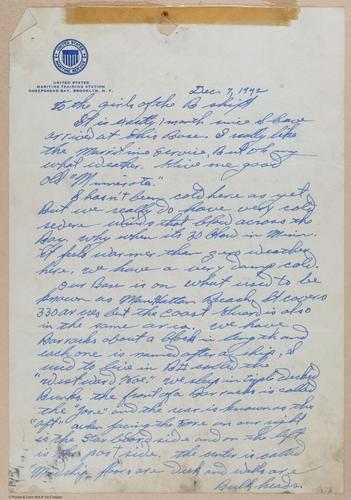 UNITED STATES
MARITIME TRAINING STATION
SHEEPSHEAD BAY, BROOKLYN, N.Y.
Dec 7, 1942
To the girls of the B shift
It is exactly 1 month since I have
arrived at this Base. I really like
the Maritime Service, But oh my
what weather. Give me good
old "Minnesota."
It hasn't been cold here as yet
But we really do have very cold
severe winds that blow across the
Bay. Why when its 30 below in Minn.
it feels warmer than weather
here. We have a very damp cold.
Our Base is on what used to be
known as Manhattan Beach. It covers
330 acres but the Coast Guard is also
in the same area. We have
Barracks about a block in length and
each one is named after a ship, I
used to live in B called the
"Westward Hoe." We sleep in triple decked
Bunks. The front of a Barracks is called
the "fore" and the rear is known as the
"aft". When facing the fore on our right
is the Starboard side and on the left
is the port side. The center is called
Midship, floors are Deck and walls are
Bulkheads.